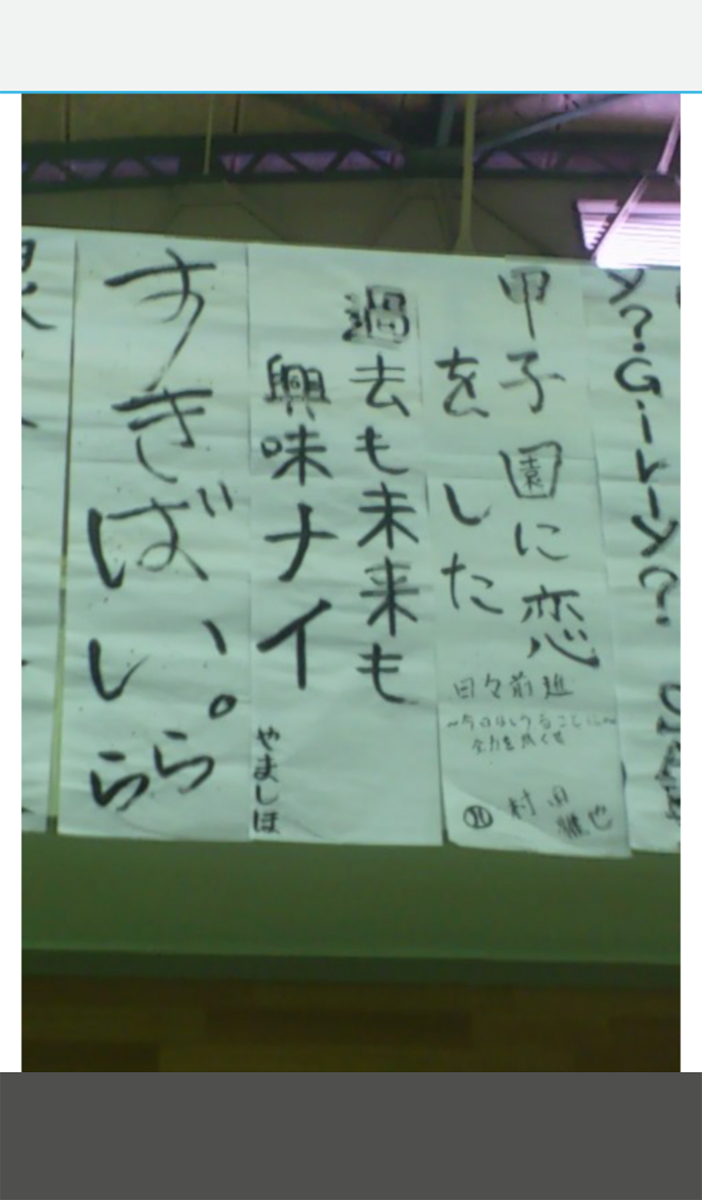 y?Girly?
甲子園に恋
をした
日々前進
全力を尽くせ
村田
雅也
過去も未来も
興味ナイ
やましほ
すきばい。
らら